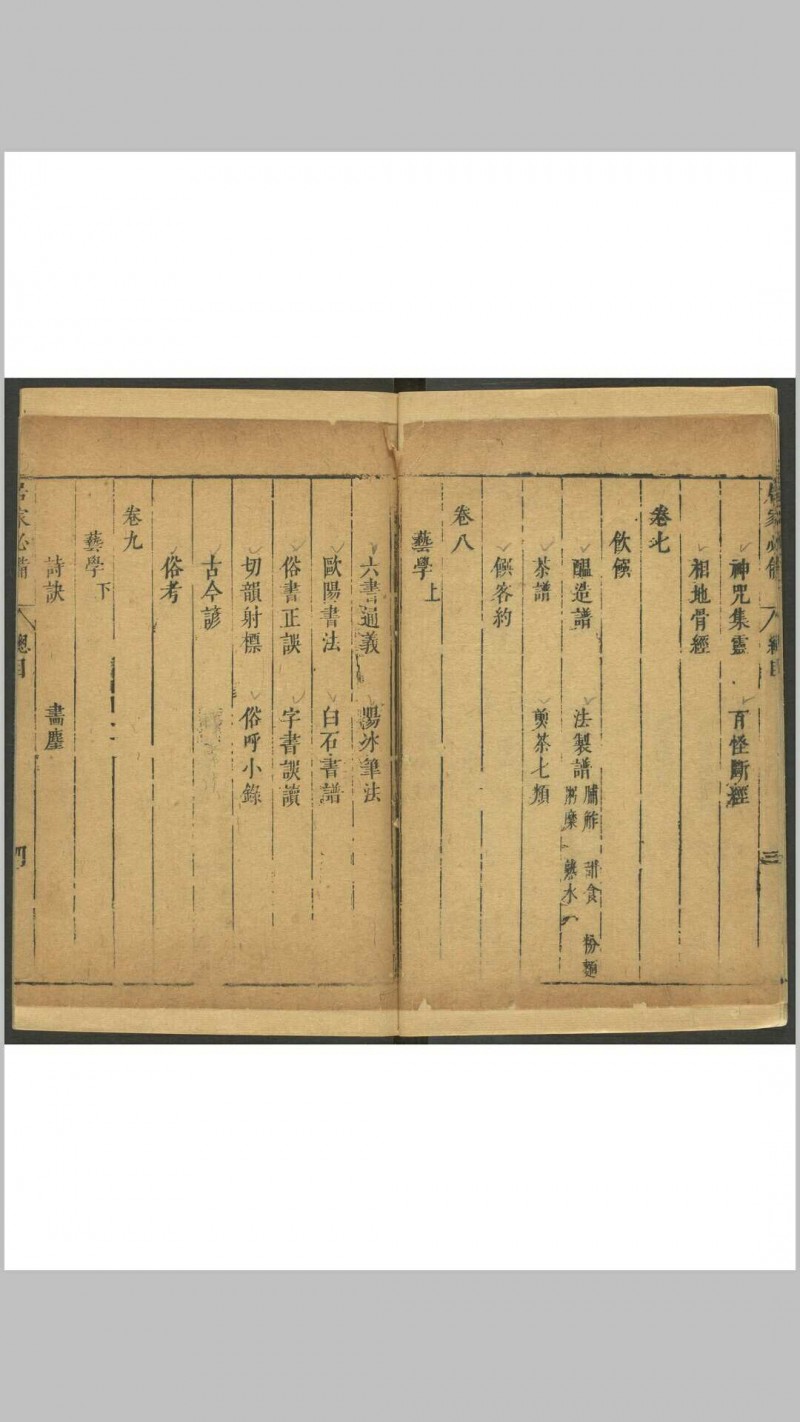 家必備
總目
三
神咒集靈 百怪斷經
相地骨經
卷七
飲饌
醞造譜 法製譜 脯鮓 甜食 粉麵
粥糜 熟水
茶譜 煎茶七類
饌客約
卷八
藝學上
六書通義 陽冰筆法
歐陽書法 白石書譜
俗書正誤 字書誤讀
切韻射標 俗呼小錄
古今諺
俗考
卷九
藝學下
詩訣 畫塵
家必備
總目
四